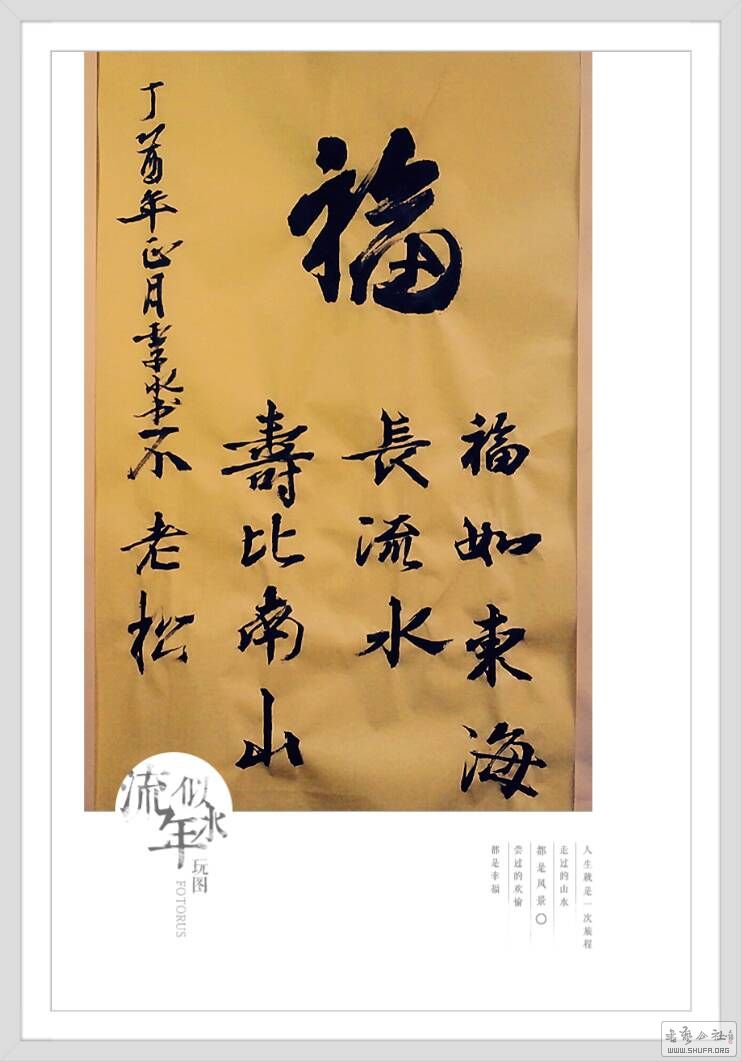 福
福如東海
長流水
壽比南山
不老松
丁酉年正月李水书
流年似水
玩图
FOTORUS
人生就是一次旅程
走过的山水
都是风景
尝过的欢愉
都是幸福
书艺公社
WWW.SHUFA.ORG